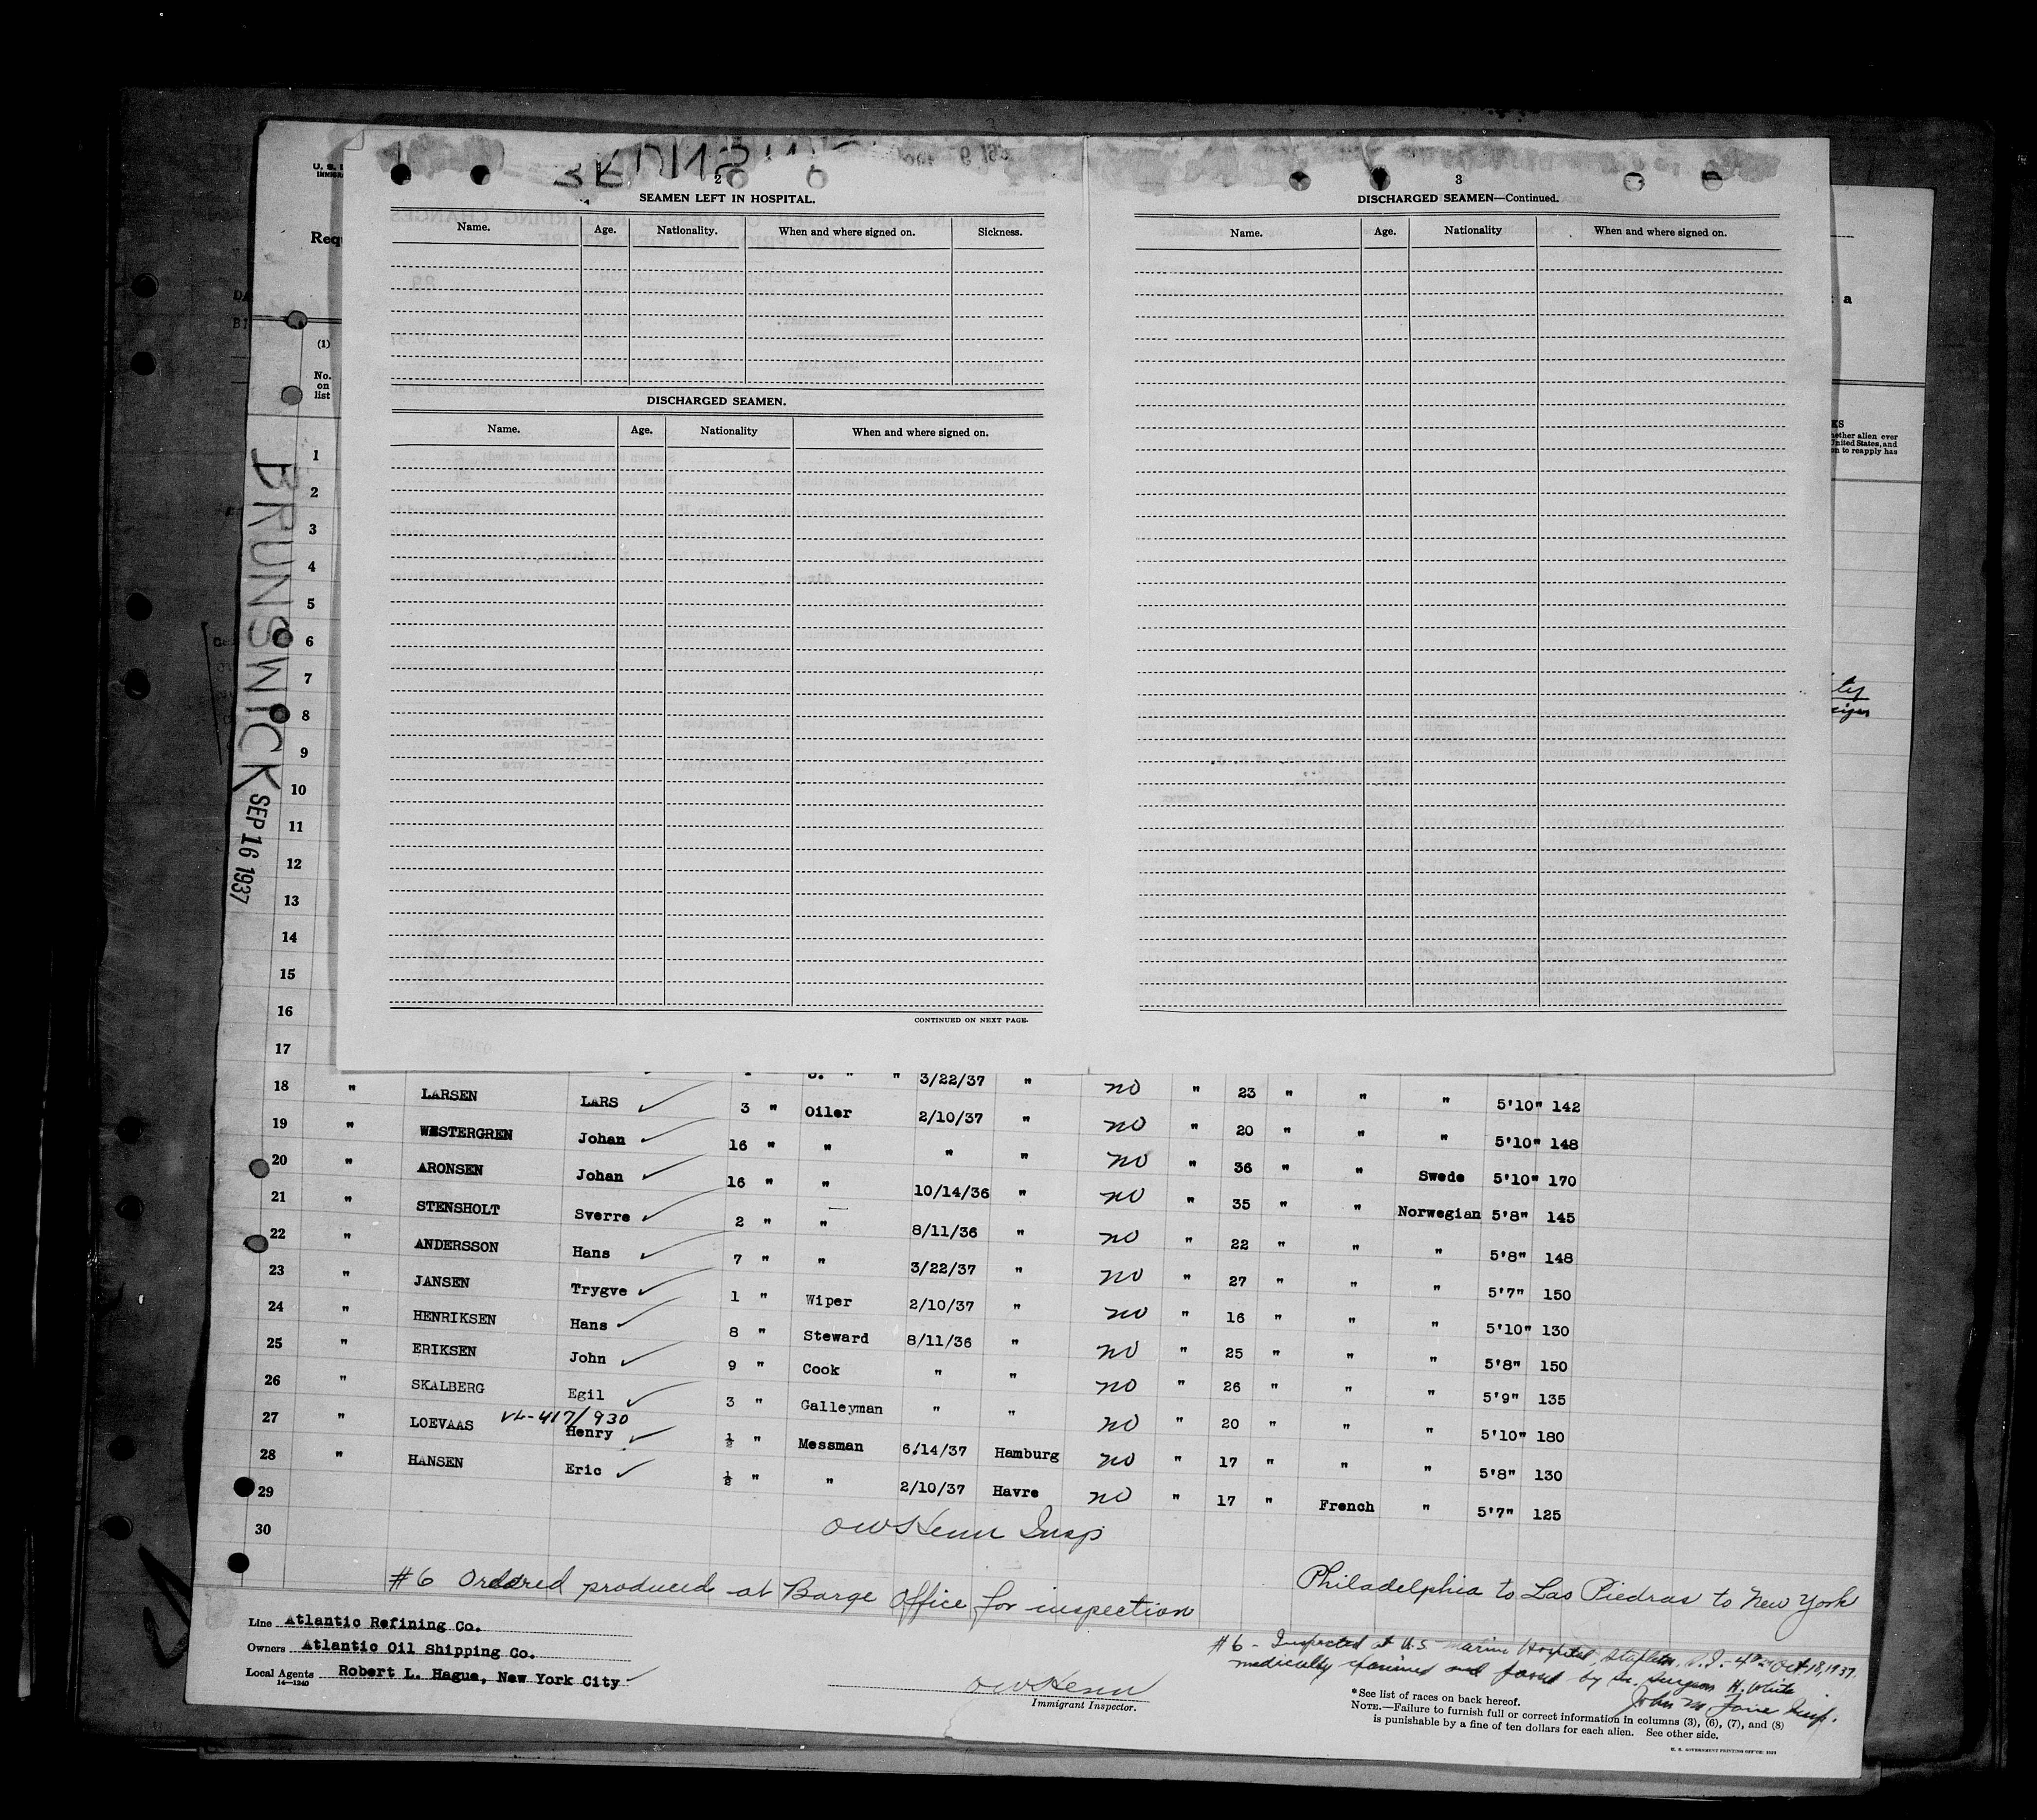 2
SEAMEN LEFT IN HOSPITAL.
Name. Age. Nationality. When and where signed on. Sickness.
DISCHARGED SEAMEN.
Name. Age. Nationality When and where signed on.
CONTINUED ON NEXT PAGE.
3
DISCHARGED SEAMEN—Continued.
Name. Age. Nationality When and where signed on.
(1)
No.
on
list
BRUNSWICK SEP 16 1937
1
2
3
4
5
6
7
8
9
10
11
12
13
14
15
16
17
" " 3/22/37 " no " 23 " " " 5'10" 142
18 " LARSEN LARS 3 " Oiler 2/10/37 " no " 20 " " " 5'10" 148
19 " WESTERGREN Johan 16 " " " " no " 36 " " Swede 5'10" 170
20 " ARONSEN Johan 16 " " 10/14/36 " no " 35 " " Norwegian 5'8" 145
21 " STENSHOLT Sverre 2 " " 8/11/36 " no " 22 " " " 5'8" 148
22 " ANDERSSON Hans 7 " " 3/22/37 " no " 27 " " " 5'7" 150
23 " JANSEN Trygve 1 " Wiper 2/10/37 " no " 16 " " " 5'10" 130
24 " HENRIKSEN Hans 8 " Steward 8/11/36 " no " 25 " " " 5'8" 150
25 " ERIKSEN John 9 " Cook " " no " 26 " " " 5'9" 135
26 " SKALBERG Egil 3 " Galleyman " " no " 20 " " " 5'10" 180
VL-417/930
27 " LOEVAAS Henry ½ " Messman 6/14/37 Hamburg no " 17 " " " 5'8" 130
28 " HANSEN Eric ½ " " 2/10/37 Havre no " 17 " French " 5'7" 125
29
30
Insp
#6 Ordered produced at Barge Office for inspection
Philadelphia to Las Piedras to New York
Line Atlantic Refining Co.
Owners Atlantic Oil Shipping Co.
Local Agents Robert L. Hague, New York City
14—1240
Immigrant Inspector.
#6 - Inspected at U.S. Marine Hospital, Stapleton, S.I. Oct 18, 1937.
medically examined and passed by Sr. Surgeon H. White
John M
*See list of races on back hereof.
NOTE.—Failure to furnish full or correct information in columns (3), (6), (7), and (8)
is punishable by a fine of ten dollars for each alien. See other side.